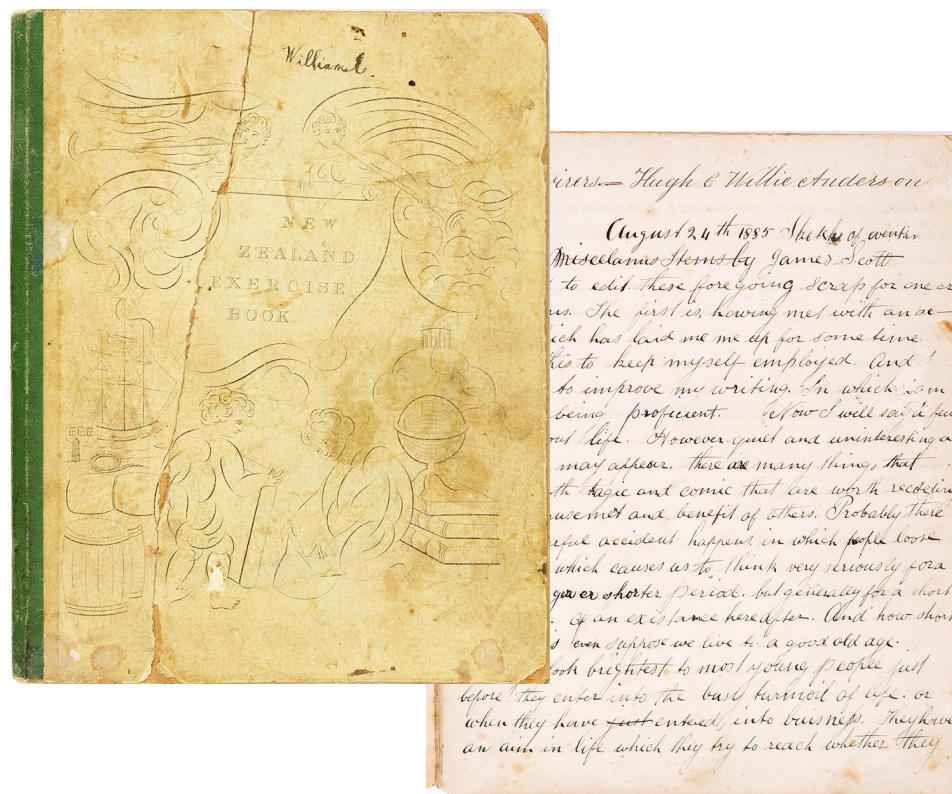 William C.
NEW
ZEALAND
EXERCISE
BOOK.
Hugh & Willie Anderson
August 24th 1885 Sketch of
Miscelanus Items by James Scott
to edit these foregoing scrap for one or
The first is, having met with an ac-
ich has laid me me up for some time
to keep myself employed. And I
to improve my writing. In which I am
being proficient. Now I will say a few
out life. However quiet and uninteresting
may appear. there are many things that
th tagic and comic that are worth
and benefit of others. Probably there
accident happens, in which people loose
which causes us to think very seriously for a
shorter period. but generally for a short
of an existance hereafter. And how short
even suppose we live to a good old age.
look brightest to most young people just
before they enter into the busy turmoil of life. or
when they have just entered into buisness. They have
an aim in life which they try to reach whether they